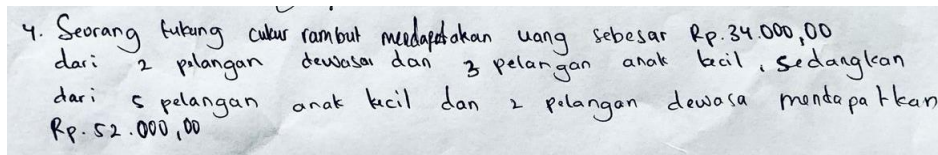 4. Seorang tukang cukur rambut mendapatakan uang sebesar Rp.34.000,00
dari 2 pelangan dewasa dan 3 pelangan anak kecil, sedangkan
dari 5 pelangan anak kecil dan 2 pelangan dewasa mendapatkan
Rp.52.000,00